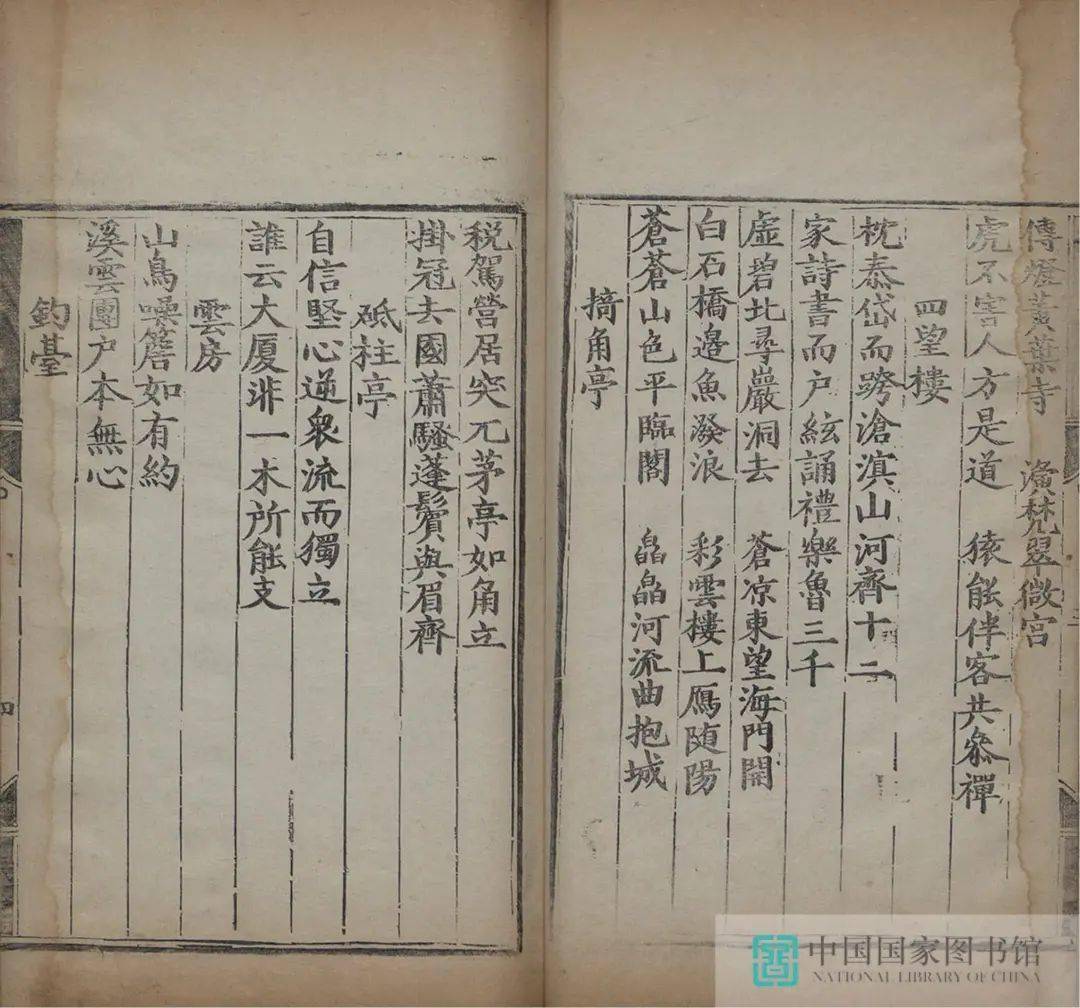 傳燈黃葉寺 演梵翠微宮
虎不害人方是道 猿能伴客共叅禪
四望樓
枕泰岱而跨滄溟山河齊十二
家詩書而户絃誦禮樂魯三千
虛碧北尋巖洞去 蒼凉東望海門開
白石橋邉魚潑浪 彩雲樓上鴈随陽
蒼蒼山色平臨閣 皛皛河流曲抱城
掎角亭
税駕營居突兀茅亭如角立
掛冠去國蕭騷蓬鬢與眉齊
砥柱亭
自信堅心逆衆流而獨立
誰云大厦非一木所能支
雲房
山鳥噪簷如有約
溪雲團户本無心
釣臺
四
中国国家图书馆
NATIONAL LIBRARY OF CHINA